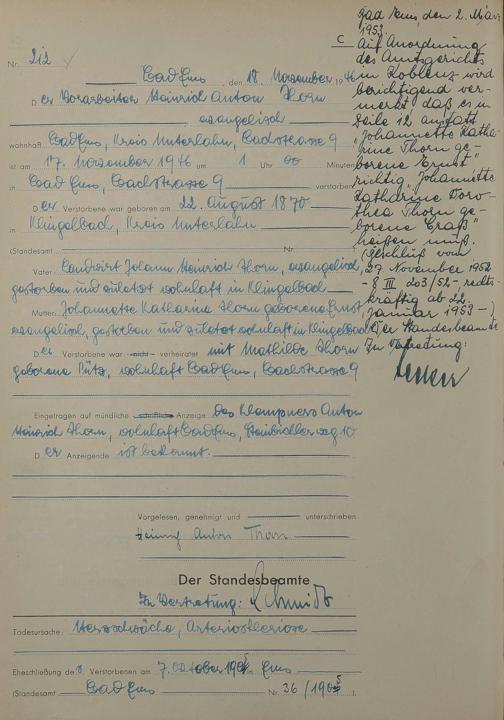 C
Nr. 212
Bad Ems, den 18. November 1946
Der Vorarbeiter Heinrich Anton Thorn
evangelisch
wohnhaft Bad Ems, Kreis Unterlahn, Bachstrasse 9
ist am 17. November 1946 um 1 Uhr 00 Minuten
in Bad Ems, Bachstrasse 9 verstorben
Der Verstorbene war geboren am 22. August 1870
in Klingelbach, Kreis Unterlahn
(Standesamt Nr.
Vater: Landwirt Johann Heinrich Thorn, evangelisch,
gestorben und zuletzt wohnhaft in Klingelbach
Mutter: Johannette Katharina Thorn geborene Ernst,
evangelisch, gestorben und zuletzt wohnhaft in Klingelbach
Der Verstorbene war nicht verheiratet mit Mathilde Thorn
geborene Pütz, wohnhaft Bad Ems, Bachstrasse 9
Eingetragen auf mündliche schriftliche Anzeige des Klempners Anton
Heinrich Thorn, wohnhaft Bad Ems, 10
Der Anzeigende ist bekannt.
Vorgelesen, genehmigt und unterschrieben
Heinrich Anton Thorn
Der Standesbeamte
In Vertretung: Schmidt
Todesursache: Herzschwäche, Arteriosklerose
Eheschließung des Verstorbenen am 7. Oktober 1905 in Ems
(Standesamt Bad Ems Nr. 36/1905).
Bad Ems, den 2. März
1953.
Auf Anordnung
des Amtsgerichts
in Koblenz wird
berichtigend ver-
merkt, daß es in
Zeile 12 anstatt
"Johannette Katha-
rine Thorn ge-
borene Ernst"
richtig "Johannette
Katharine Doro-
thea Thorn ge-
borene Graß"
heißen muß.
(Beschluß vom
29. November 1952
- 8 III 203/52-, rechts-
kräftig ab 22.
Januar 1953 -)
Der Standesbeamte
In Vertretung: